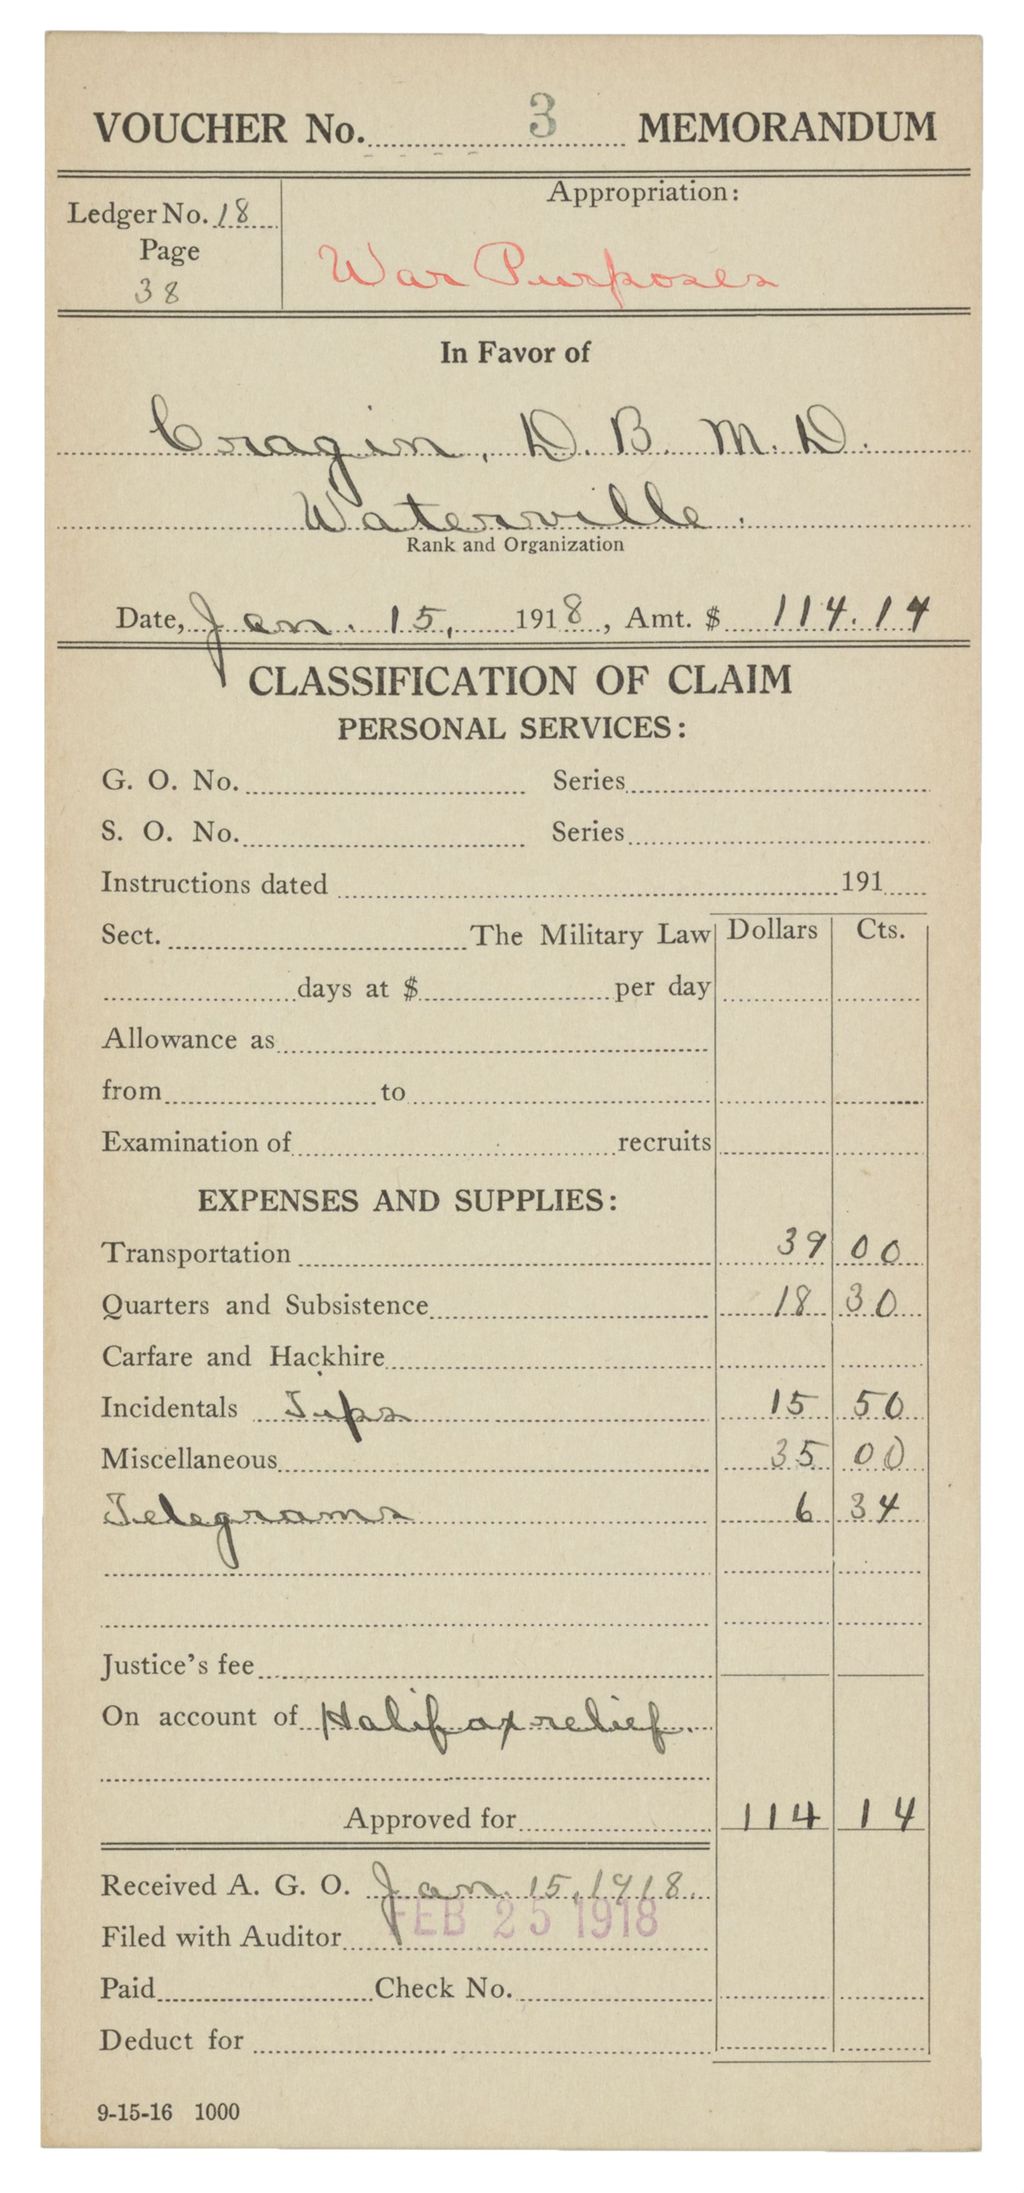 VOUCHER No. 3 MEMORANDUM
Ledger No. 18
Page
38
Appropriation:
War Purposes
In Favor of
Cragin, D. B. M. D.
Waterville.
Rank and Organization
Date, Jan. 15, 1918, Amt. $ 114.14
CLASSIFICATION OF CLAIM
PERSONAL SERVICES:
G. O. No. Series
S. O. No. Series
Instructions dated 191
Sect. The Military Law Dollars Cts.
days at $ per day
Allowance as
from to
Examination of recruits
EXPENSES AND SUPPLIES:
Transportation 39 00
Quarters and Subsistence 18 30
Carfare and Hackhire
Incidentals Tips 15 50
Miscellaneous 35 00
Telegrams 6 34
Justice's fee
On account of Halifax relief.
Approved for 114 14
Received A. G. O. Jan. 15, 1918.
FEB 25 1918
Filed with Auditor
Paid Check No.
Deduct for
9-15-16 1000